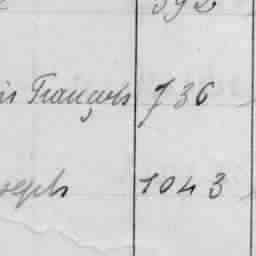 592
is François 736
oseph 1043